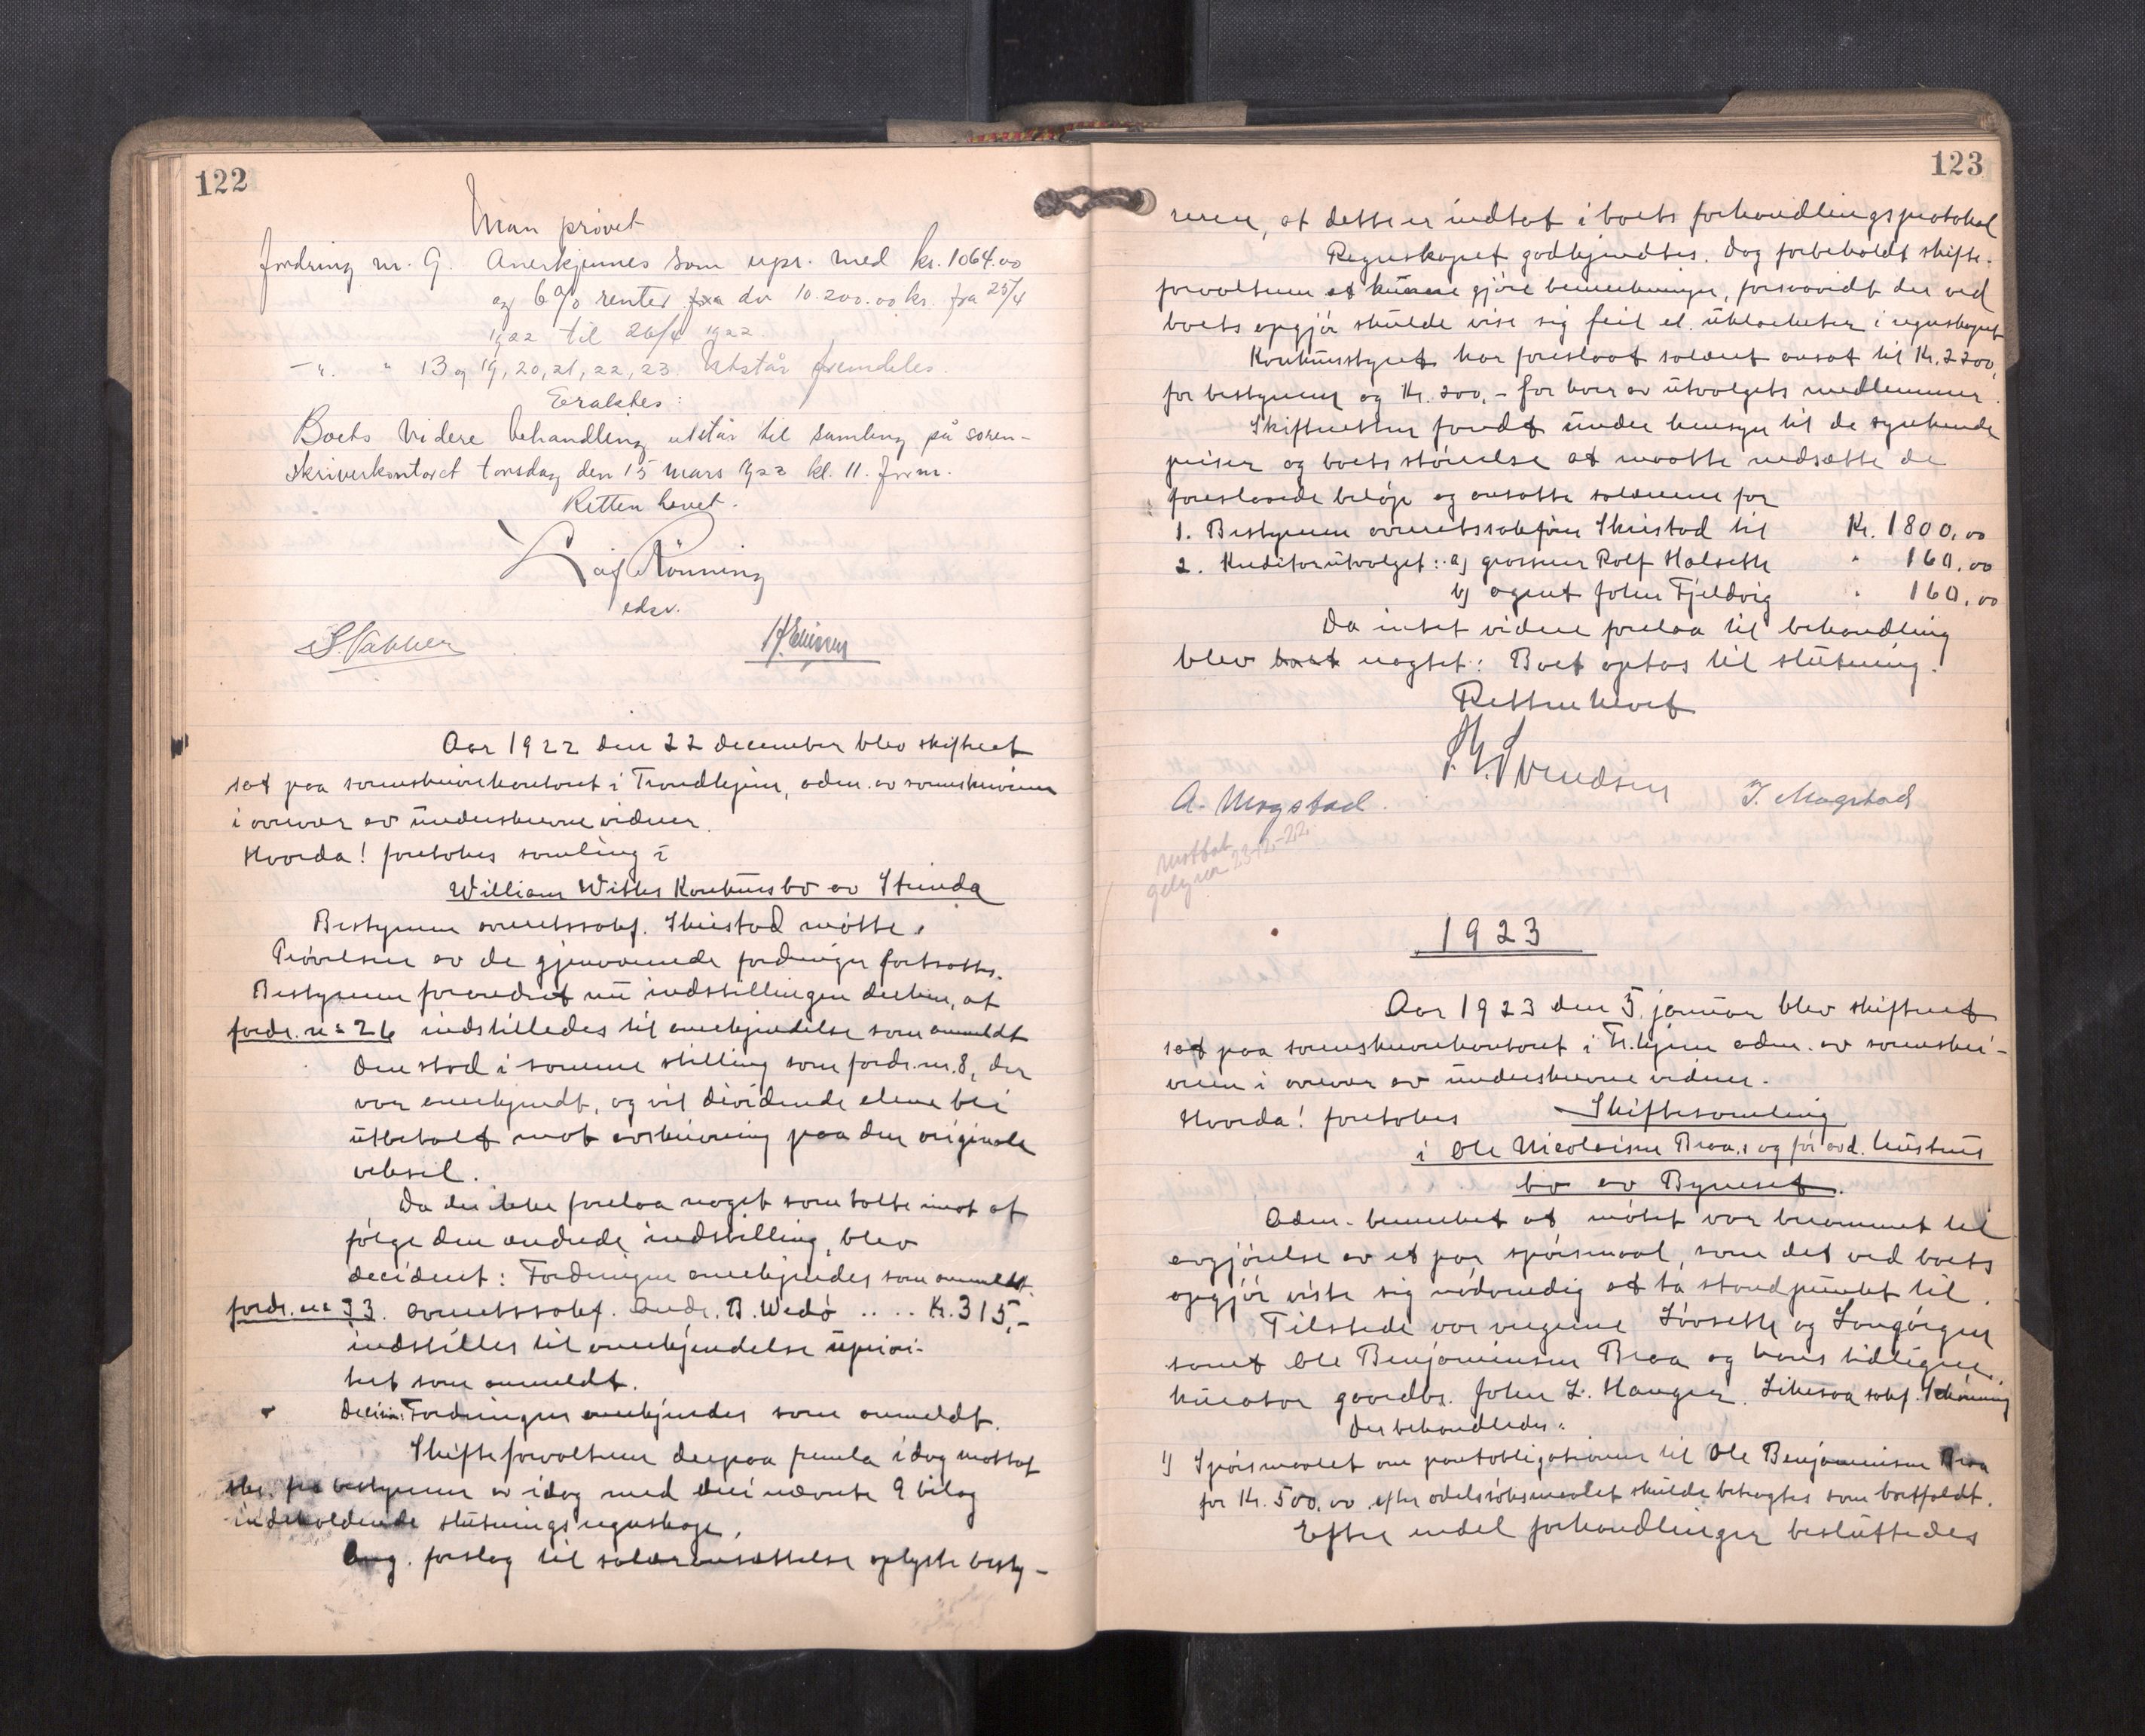 122
Man prøvet
Fordring nr. 9. Anerkjennes som upr. med kr. 1064.00
og 6% renter fra do 10.200.00 kr. fra 25/4
1922 til 26/4 1922.
-"- " 13 og 19, 20, 21, 22, 23. Utstår fremdeles.
Eraktes:
Boets videre behandling utstår til samling på soren-
skriverkontoret torsdag den 15 mars 1923 kl. 11. form.
Retten hevet.
Leif Rönning
edsv.
Aar 1922 den 22 december blev skifteret
sat paa sorenskriverkontoret i Trondhjem, adm. av sorenskriveren
i overvær av underskrevne vidner.
Hvorda! foretokes samling i
William Witths Konkursbo av Strinda
Bestyreren overretssakf. Skeistad møtte.
Prøvelsen av de gjenværende fordringer fortsattes.
Bestyreren forandret nu indstillingen derhen, at
fordr. nr 26 indstilledes til anerkjendelse som anmeldt
Den stod i samme stilling som fordr. nr. 8, der
var anerkjendt, og vil dividende alene bli
utbetalt mot avskrivning paa den originale
veksel.
Da der ikke forelaa noget som talte imot at
følge den ændrede indstilling, blev
decidert: Fordringen anerkjendes som anmeldt.
fordr. nr 33. overretssakf. Andr. B. Wedø .... Kr. 315,-
indstilles til anerkjendelse upriori-
tert som anmeldt.
Decision: Fordringen anerkjendes som anmeldt.
Skifteforvalteren derpaa fremla idag mottat
skr. fra bestyreren av idag med deri nævnte 9 bilag
indeholdende slutningsregnskap.
Ang. forslag til salæransættelse oplyste besty-
123
reren, at dette er indtat i boets forhandlingsprotokol
Regnskapet godkjendtes. Dog forbeholdt skifte-
forvalteren at kunne gjøre bemerkninger, forsaavidt der ved
boets opgjør skulde vise sig feil el. uklarheter i regnskapet
Konkursstyret har foreslaat salæret ansat til Kr. 2200,
for bestyrer og Kr. 200,- for hver av utvalgets medlemmer.
Skifteretten fandt under hensyn til de synkende
priser og boets størrelse at maatte nedsætte de
foreslaaede beløp og ansatte salærene for
1. Bestyreren overretssakfører Skeistad til Kr. 1800,00
2. Kreditorutvalget: a) grosserer Rolf Halseth " 160,00
b) agent John Fjeldvig " 160,00
Da intet videre forelaa til behandling
blev boet vagtet: Boet optas til slutning.
Retten hevet
A. Mogstad. J. Mogstad
1923
Aar 1923 den 5. januar blev skifteret
sat paa sorenskriverkontoret i Tr.hjem adm. av sorenskri-
veren i overvær av underskrevne vidner.
Hvorda! foretokes Skiftesamling
i Ole Nicolaisen Braa,s og før avd. hustrus
bo av Bynesset.
Adm. bemerket at møtet var berammet til
avgjørelse av et par spørsmaal, som det ved boets
opgjør viste sig nødvendig at ta standpunkt til.
Tilstede var vergerne Løvseth og Langørgen
samt Ole Benjaminsen Braa og hans tidligere
kurator gaardbr. John L. Hauger. Likesaa sakf. Schønning
Der behandledes:
1) Spørsmaalet om pantobligationen til Ole Benjaminsen Braa
for Kr. 500,00 efter odelsløsmaalet skulde betragtes som bortfaldt.
Efter endel forhandlinger besluttedes